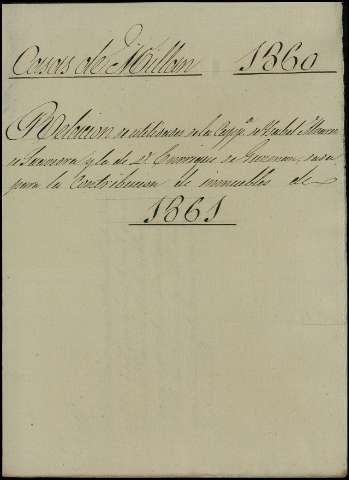 Casas de Millan 1860
Relacion de utilidades de la Capp.ª de Ysabel
de y la de D. Enrrique de Guzman, dada
para la Contribucion de inmuebles de
1861